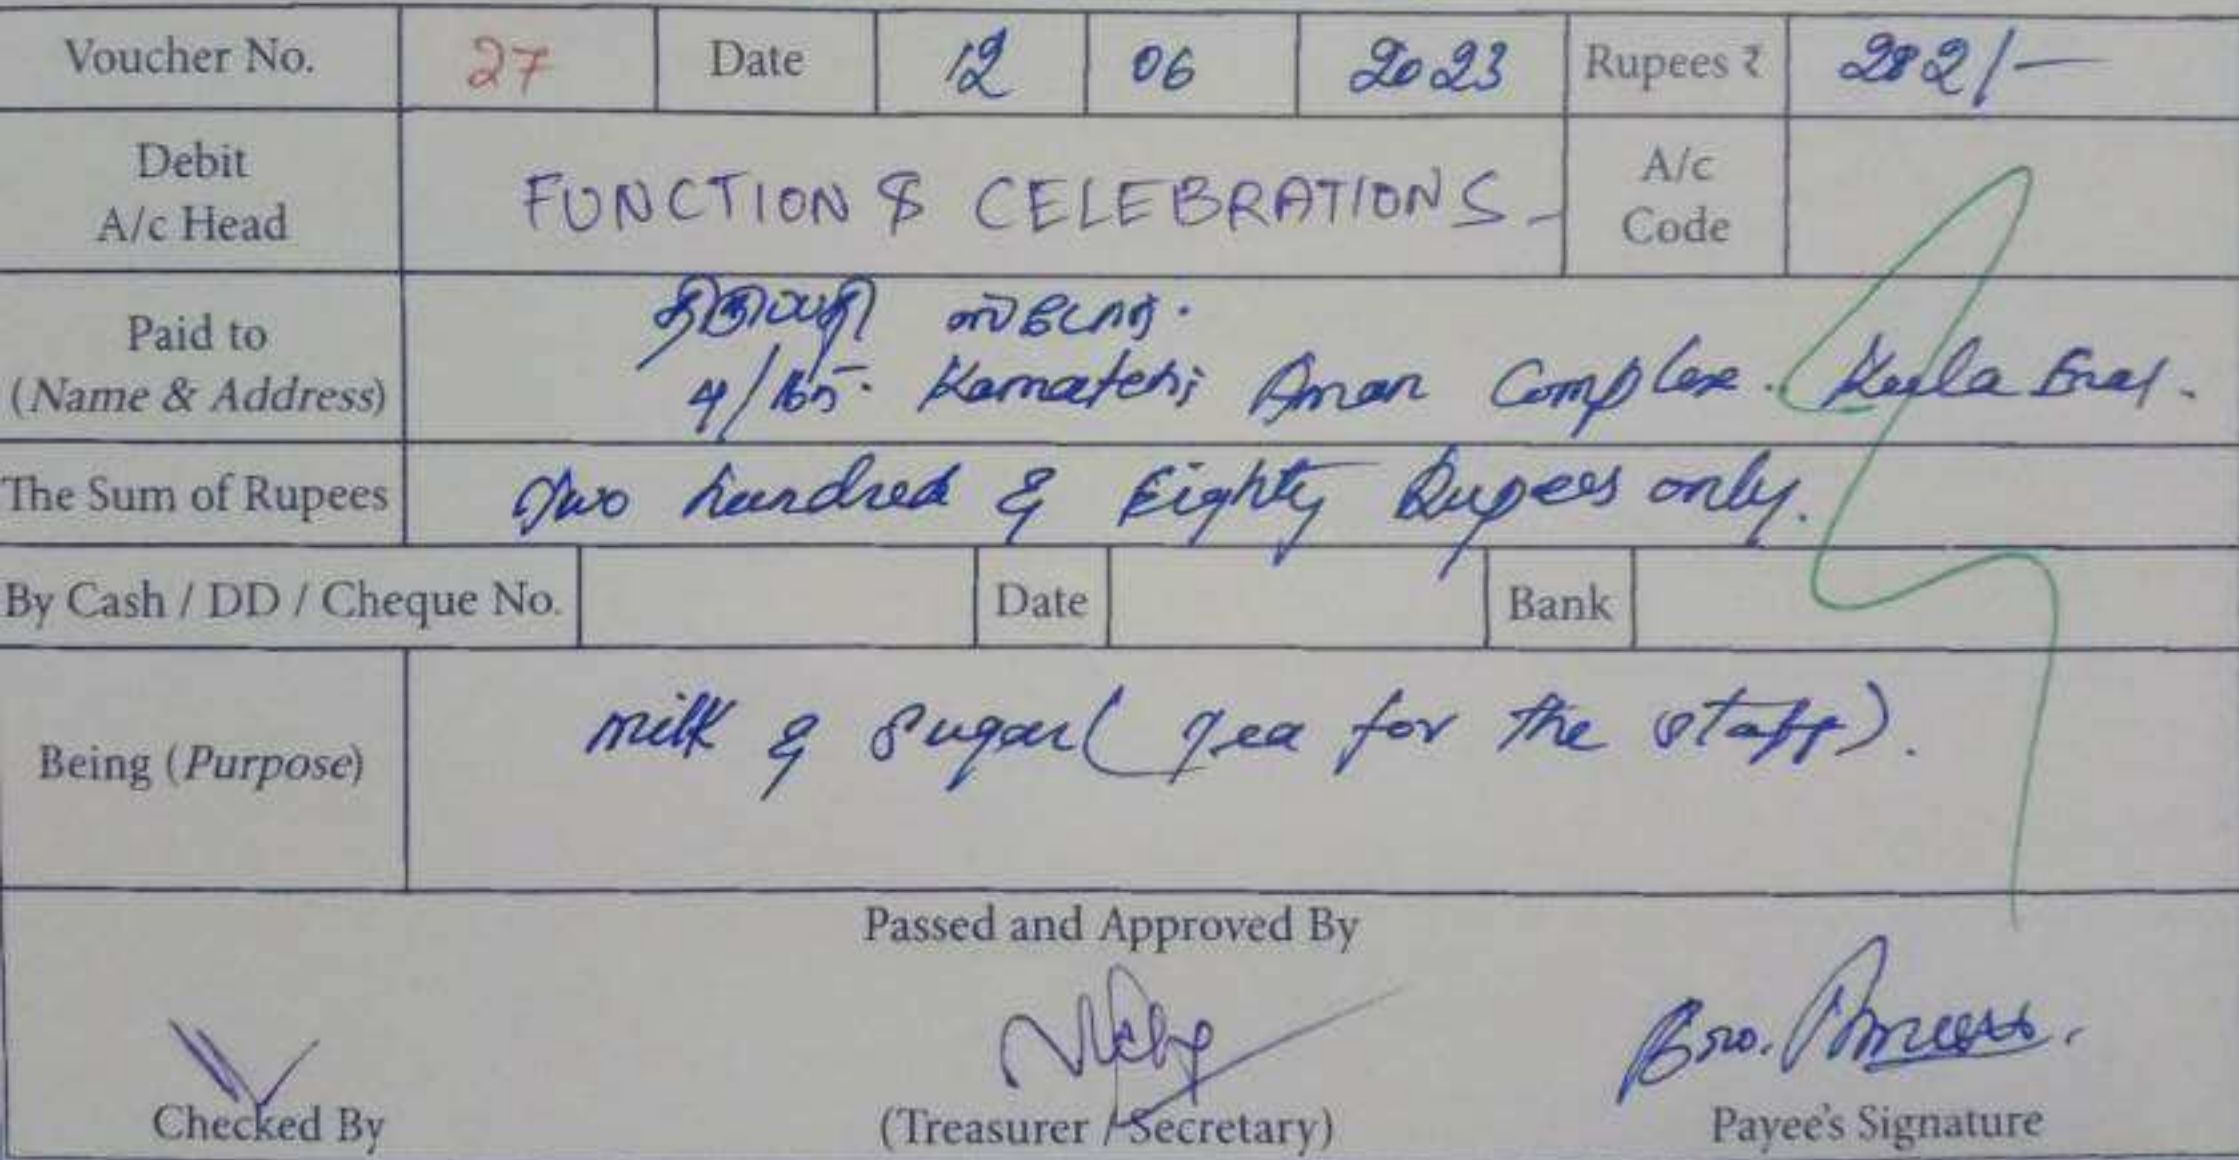 Voucher No. 27 Date 12 06 2023 Rupees ₹ 282/-
Debit A/c Head FUNCTION & CELEBRATIONS - A/c Code
Paid to (Name & Address) திருப்பதி ஸ்டோர்.
4/165. Complex. Keela Eral.
The Sum of Rupees Two hundred & Eighty Rupees only.
By Cash / DD / Cheque No. Date Bank
Being (Purpose) milk & Sugar (Tea for the staff).
Passed and Approved By
Bro.
Checked By (Treasurer / Secretary) Payee's Signature